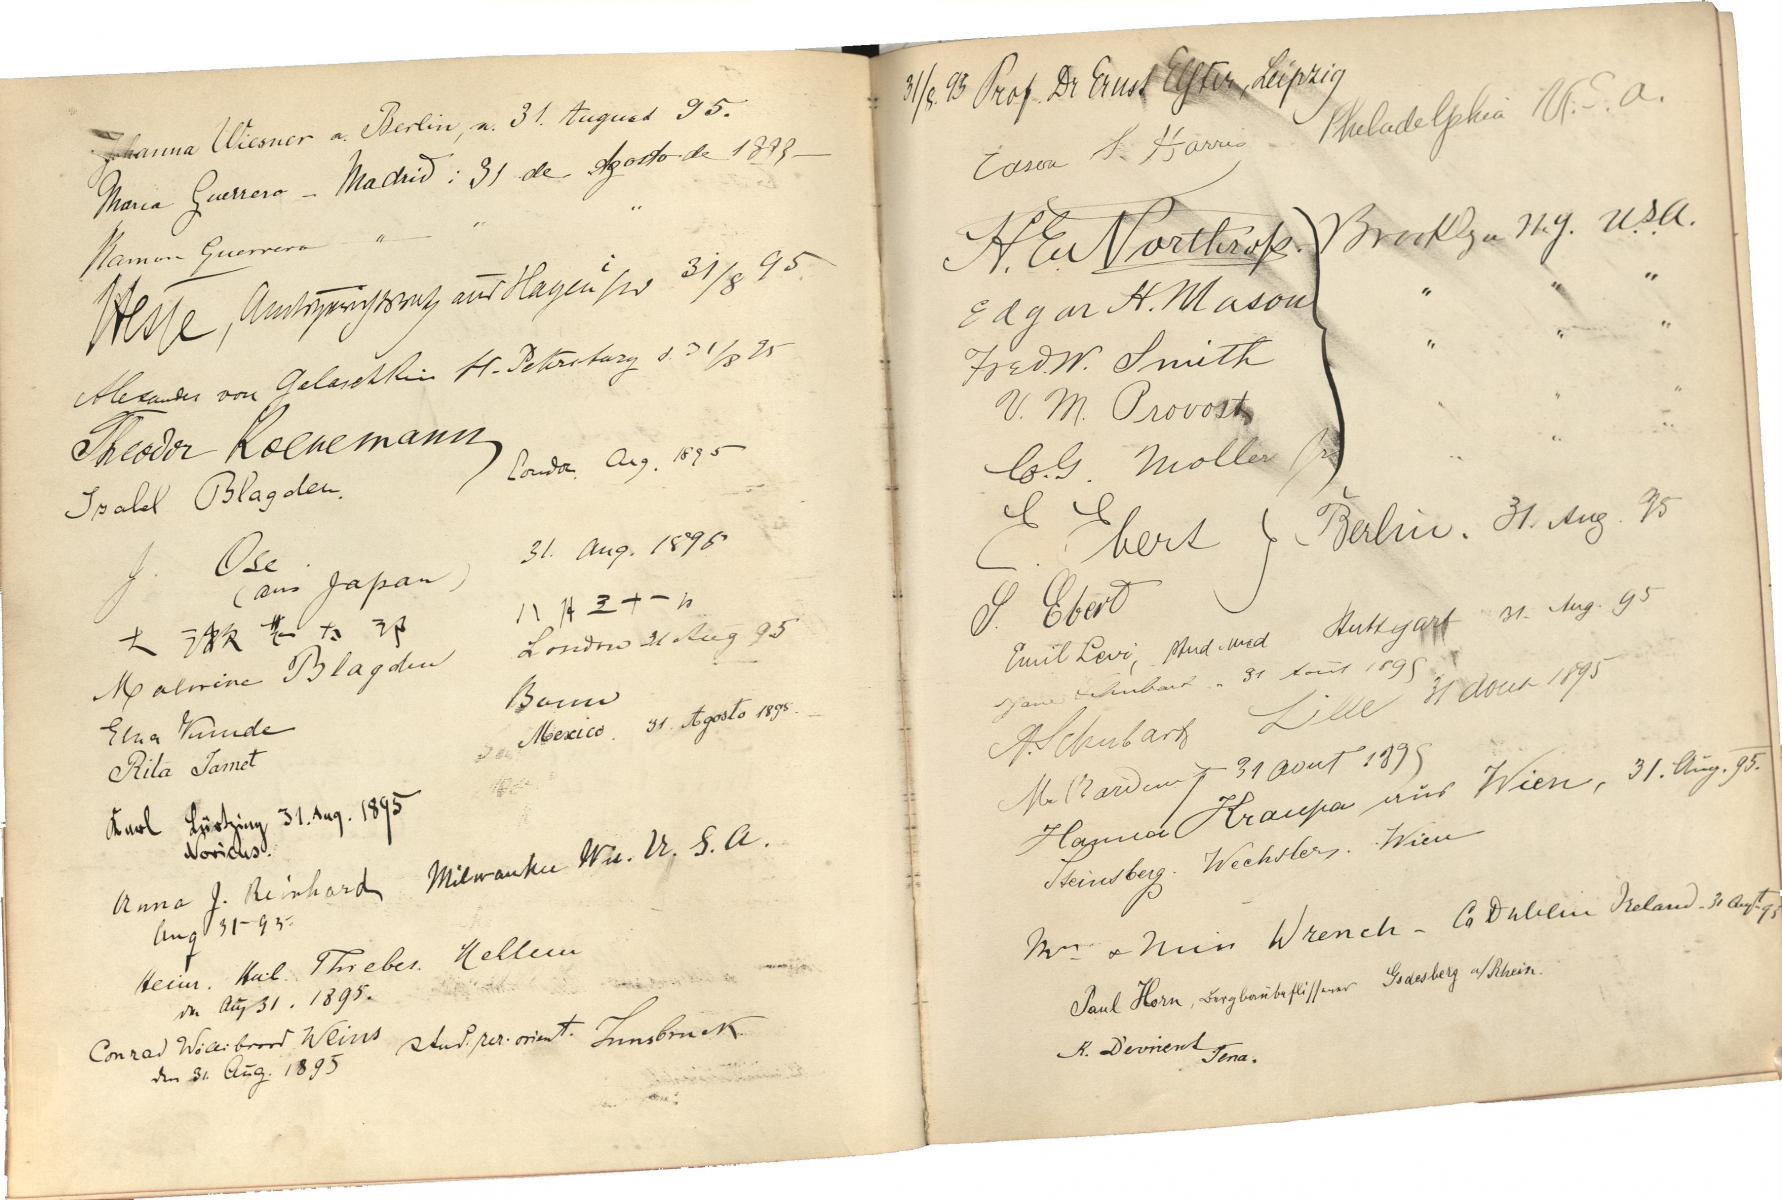 Johanna Wiesner a. Berlin, n. 31. August 95.
Maria Guerrero – Madrid: 31 de Agosto de 1893 –
Ramon Guerrero " — " "
Hesse, Amtsgerichtsrath aus Hagen i/W 31/8 95
Alexander von St. Petersburg d. 31/8 95
Theodor Koenemann
Isabel Blagden. London Aug. 1895
J. Ose 31. Aug. 1895
(aus Japan)
八月三十一日
Malwina Blagden London 31 Aug 95
Elna Bonn
Rita Jamet Mexico. 31. Agosto 1895.
Karl 31. Aug. 1895
Noricus.
Anna J. Reinhard Milwaukee Wis. U. S. A.
Aug 31–95.
Heinr. Thiebes.
den Aug 31. 1895.
Conrad Willibrord Weins stud. rer. orient. Innsbruck
den 31. Aug. 1895
31/8. 93 Prof. Dr Ernst Elster, Leipzig
S. Harris Philadelphia U.S.A.
H. E. Northrop. Brooklyn N.Y. U.S.A.
Edgar H. Mason " " "
Fred. W. Smith " " "
V. M. Provost " "
C. G. Moller Jr " "
E. Ebert } Berlin. 31. Aug. 95
S. Ebert
Emil Levi, stud. med Stuttgart 31. Aug. 95
Schubart 31 Août 1895
A. Schubart Lille 31 aout 1895
31 aout 1895
Hanna Kraupa aus Wien, 31. Aug. 95.
Steinsberg. Wechsler. Wien
Mrs & Miss Wrench – Co Dublin Ireland – 31 Augt 95
Paul Horn, Bergbaubeflissener Godesberg a/Rhein.
K. Devrient
Jena.